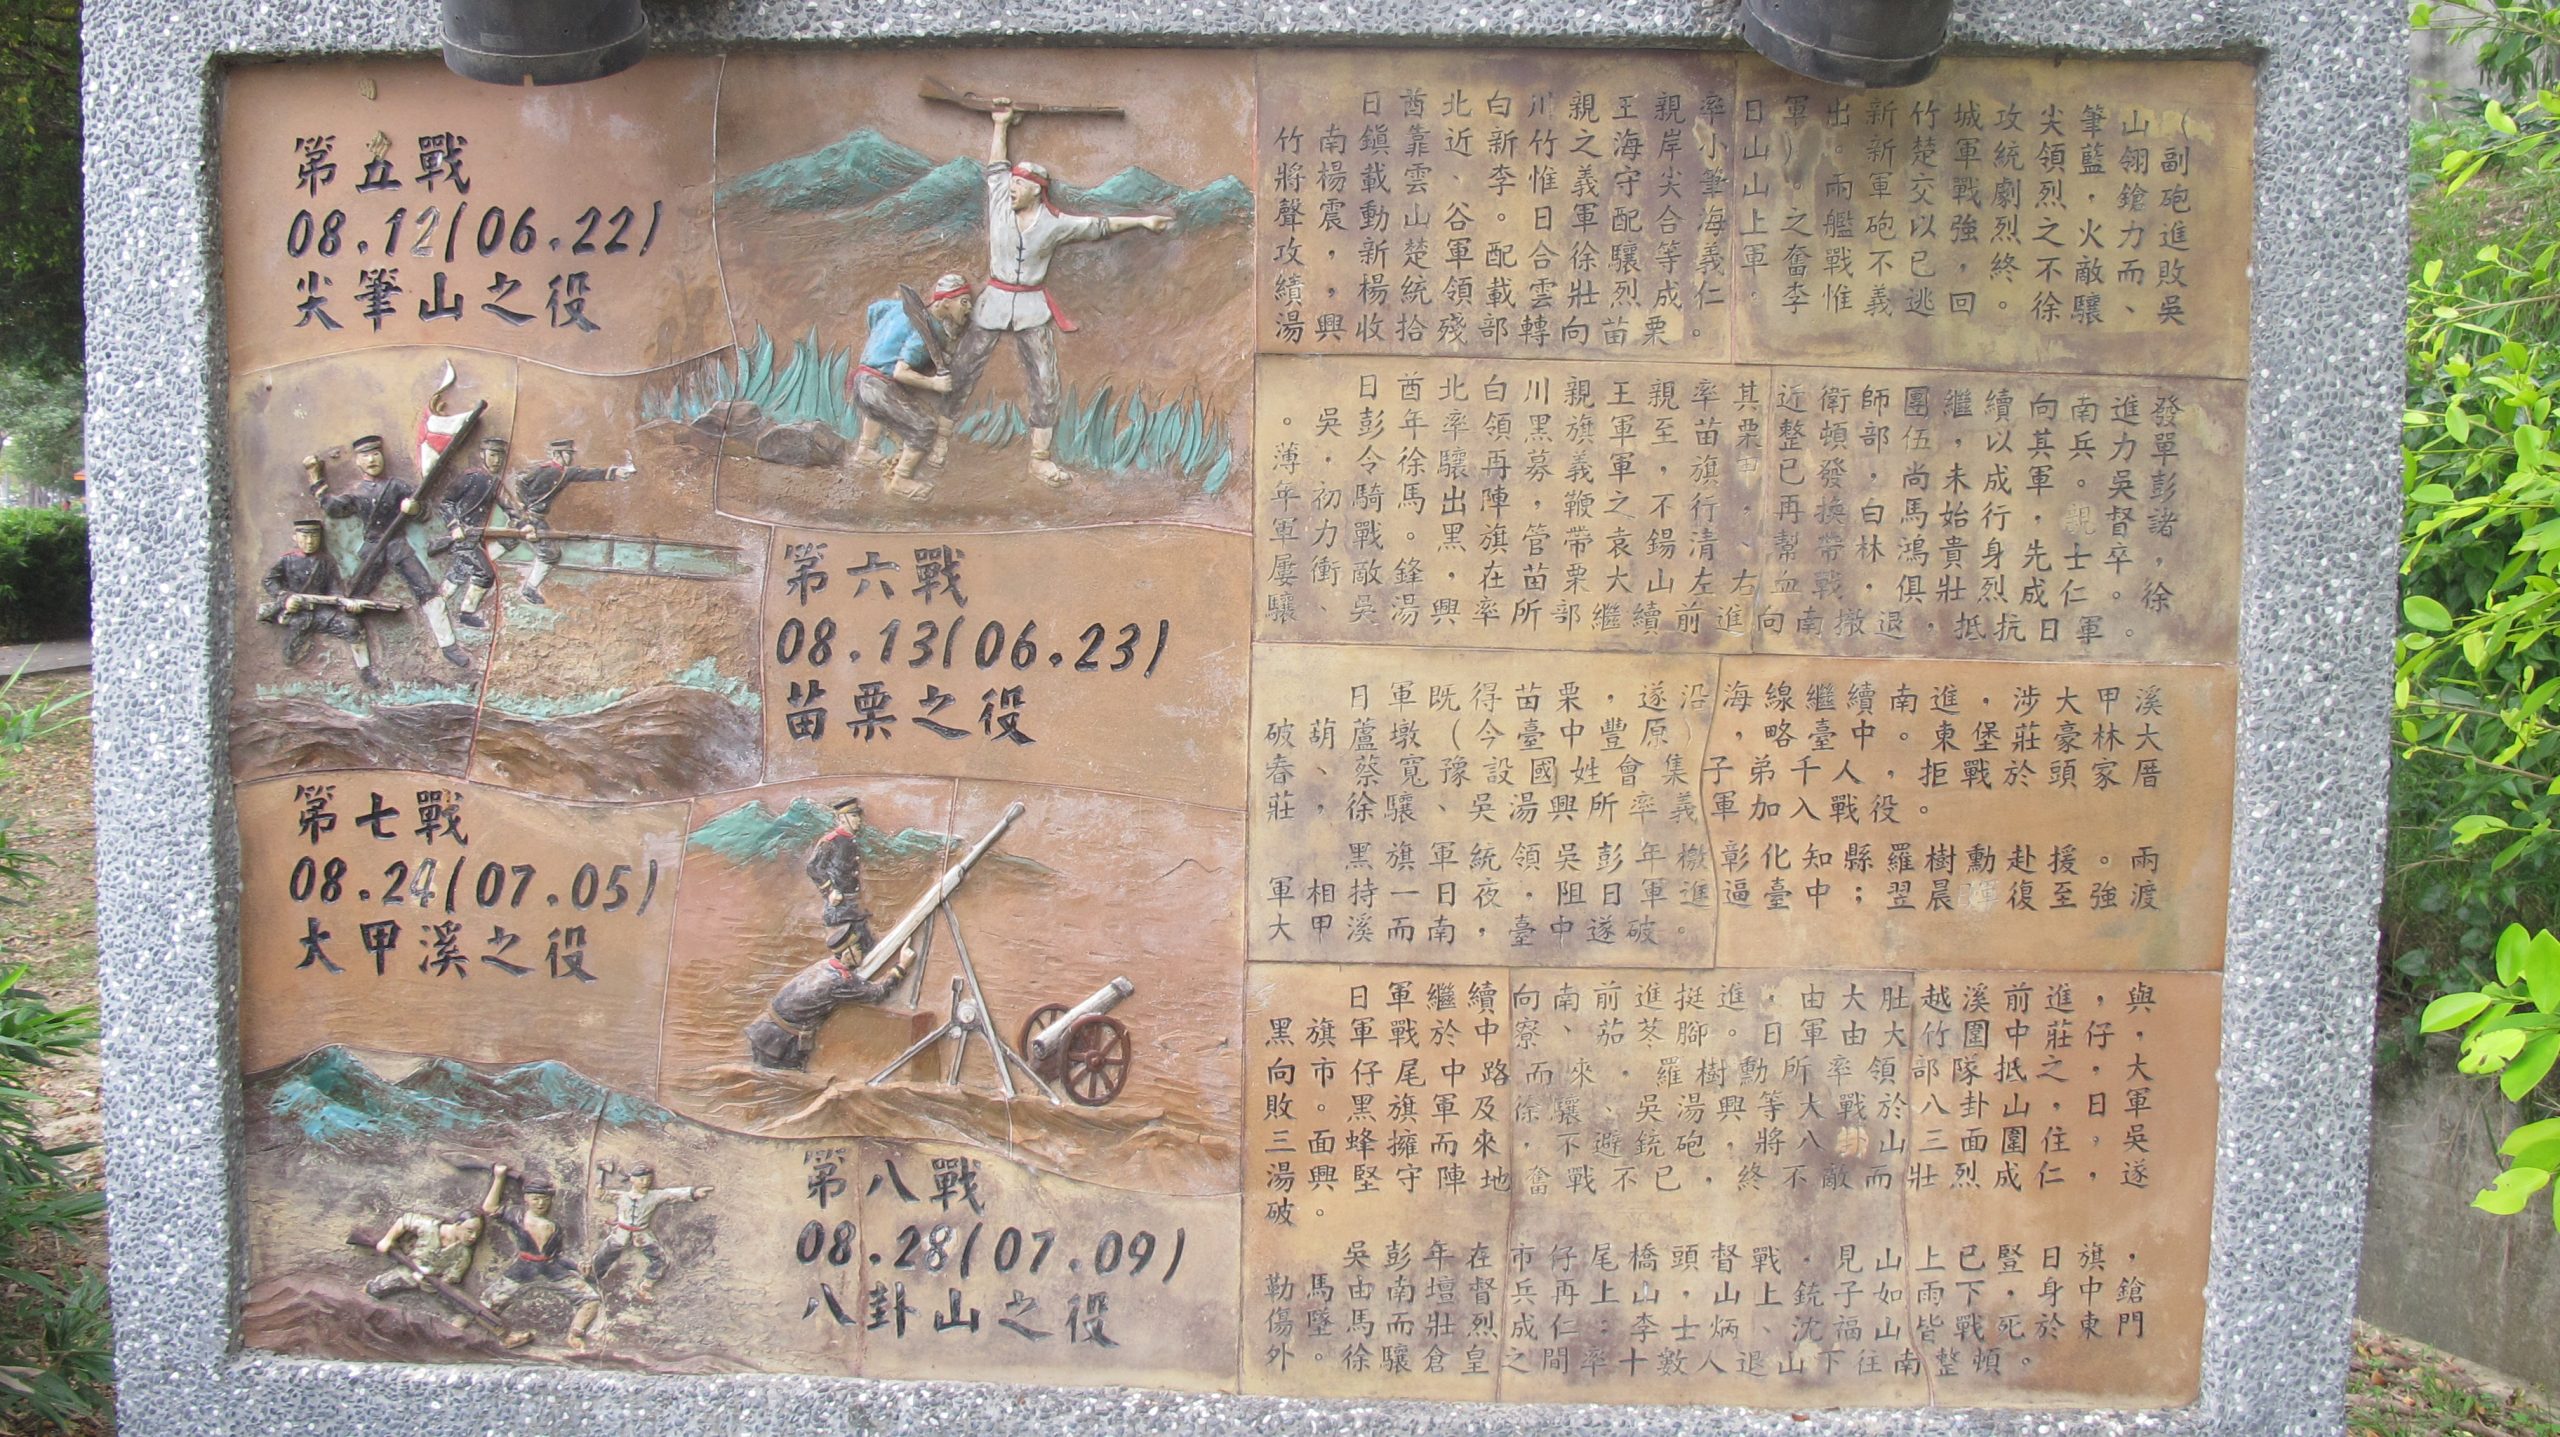 第五戰
08.12(06.22)
尖筆山之役
第六戰
08.13(06.23)
苗栗之役
第七戰
08.24(07.05)
大甲溪之役
第八戰
08.28(07.09)
八卦山之役
日酋北白川親王親率日軍出新竹城攻尖筆山（
竹南鎮靠近新竹之海岸小山）。新楚軍統領藍翎副
將楊載雲、李惟義守尖筆山。兩軍交戰劇烈，鎗砲
聲震動山谷。日軍配合海上之艦砲以強烈之火力進
攻，新楚軍配合徐驤等義軍奮戰不已，終不敵而敗
績，楊統領載雲壯烈成仁。李惟義逃回。徐驤、吳
湯興收拾殘部轉向苗栗。
日酋北白川親王親率其近衛師團，繼續向南進發
。吳彭年率領黑旗軍至苗栗，整頓部伍，以其兵力單
薄．令徐驤再募義軍，旗由已發，尚未成軍。吳彭
年初騎馬出陣，鞭之不行，再換白馬始行，親督諸
軍力戰。黑旗管帶袁錫清、幫帶林鴻貴身先士卒，
屢衝敵鋒，在苗栗大山左右血戰，俱壯烈成仁。徐
驤、吳湯興率所部繼續前進向南撤退，抵抗日軍。
日軍既得苗栗，遂沿海線繼續南進，涉大甲溪
破葫蘆墩（今臺中豐原），略臺中。東堡莊豪林大
春、蔡寬豫設國姓會集子弟千人，拒戰於頭家厝
莊，徐驤、吳湯興所率義軍加入戰役。
黑旗軍統領吳彭年檄彰化知縣羅樹勳赴援。兩
軍相持一日夜，阻日軍進逼臺中；翌晨日軍復至強渡
大甲溪而南，臺中遂破。
日軍繼續向南前進挺進，由大肚越溪前進，與
黑旗軍戰於中寮、茄苳腳。日軍由大竹圍中莊仔，
向市仔尾中路而來，羅樹勳所率領部隊抵之，大
敗。黑旗軍及徐驤、吳湯興等大戰於八卦山，日軍
三面蜂擁而來，不避銃砲，將八卦山三面圍住，吳
湯興堅守陣地奮戰不已，終不敵而壯烈成仁，遂
破。
吳彭年在市仔尾橋頭督戰．見山上已豎日旗，
勒馬由南壇督兵再上山，山上銃子如雨下，身中鎗
傷墜馬而壯烈成仁：李士炳、沈福山皆戰死於東門
外。徐驤倉皇之間率十數人退山下往南整頓。